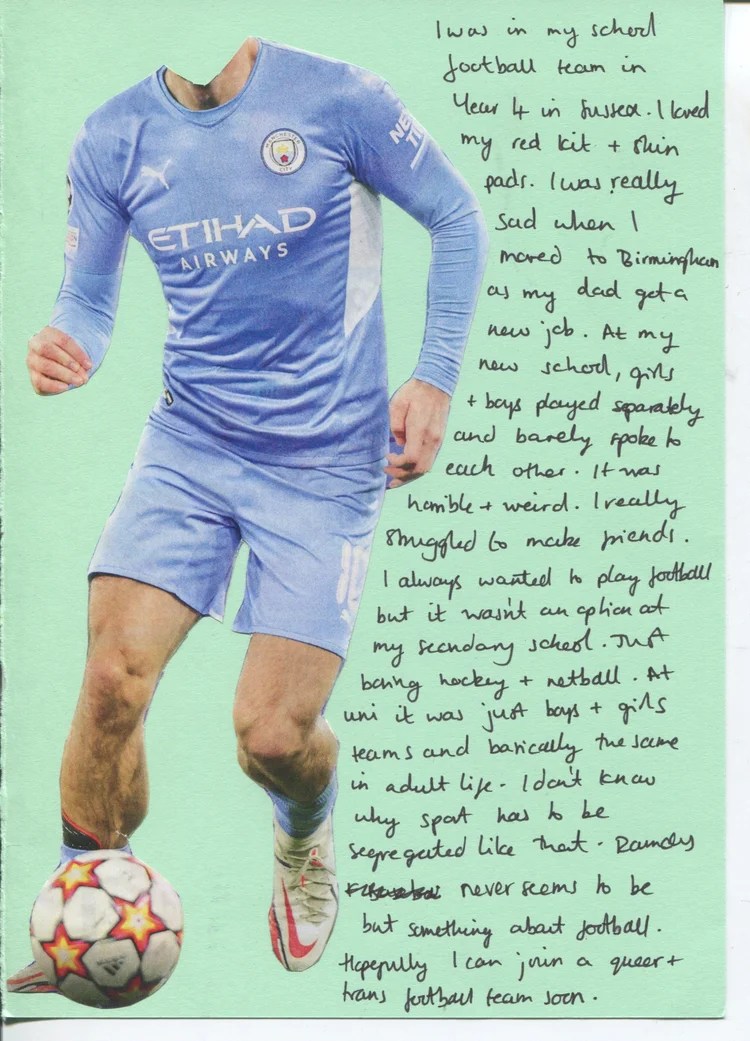 I was in my school
football team in
Year 4 in Sussex. I loved
my red kit + shin
pads. I was really
sad when I
moved to Birmingham
as my dad got a
new job. At my
new school, girls
+ boys played separately
and barely spoke to
each other. It was
horrible + weird. I really
struggled to make friends.
I always wanted to play football
but it wasn't an option at
my secondary school. Just
boring hockey + netball. At
uni it was just boys + girls
teams and basically the same
in adult life. I don't know
why sport has to be
segregated like that. Rounders
never seems to be
but something about football.
Hopefully I can join a queer +
trans football team soon.
MANCHESTER
CITY
ETIHAD
AIRWAYS
10